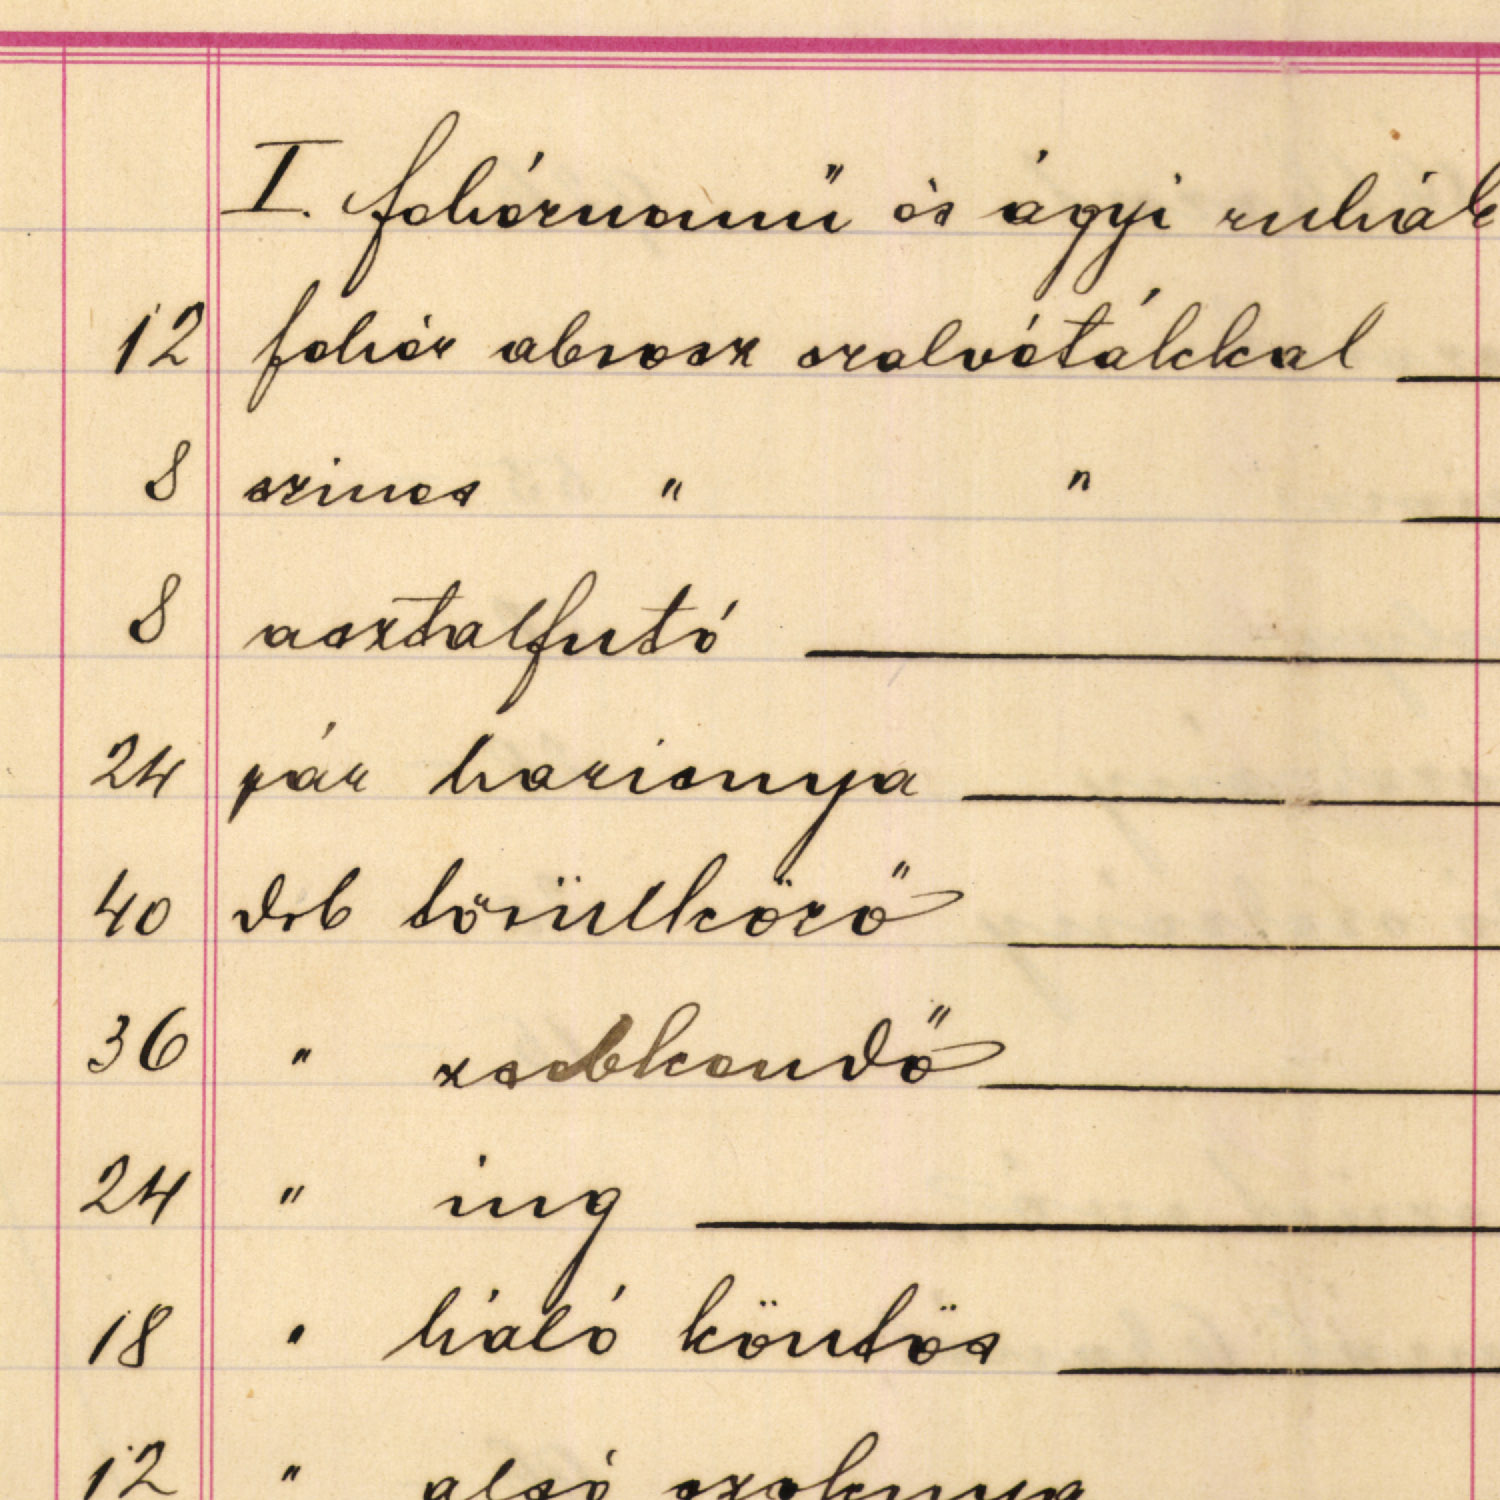 I. fehérnemű és ágyi ruhák
12 fehér abrosz szalvétákkal
8 szines " "
8 asztalfutó
24 pár harisnya
40 drb törülköző
36 " zsebkendő
24 " ing
18 " háló köntös
12 " alsó szoknya